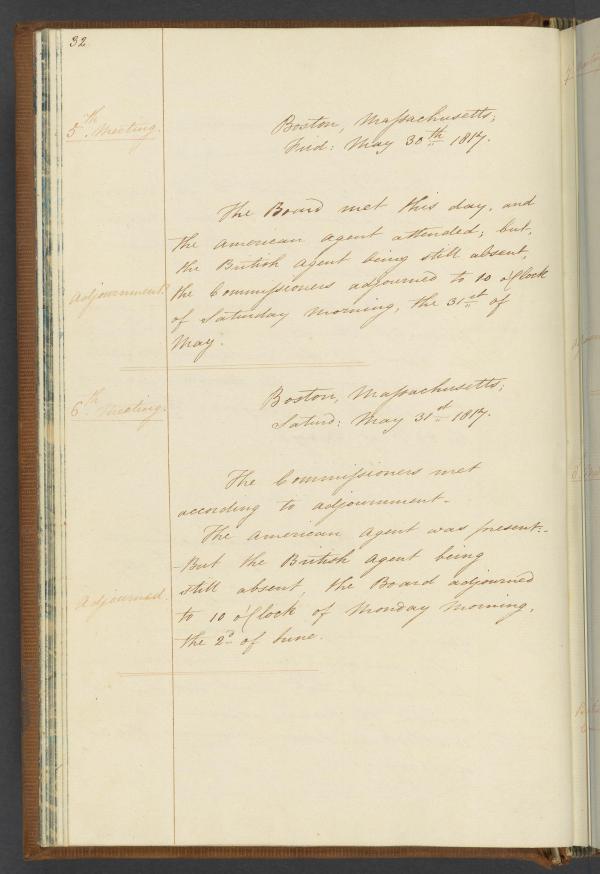 32
5th Meeting.
Boston, Massachusetts;
Frid: May 30th 1817.
The Board met this day, and
the American Agent attended; but,
the British Agent being still absent,
Adjournment.
the Commissioners adjourned to 10 o'Clock
of Saturday Morning, the 31st of
May.
6th Meeting.
Boston, Massachusetts;
Saturd: May 31st 1817.
The Commissioners met
according to adjournment.
The American Agent was present:-
-But the British Agent being
still absent, the Board adjourned
Adjourned.
to 10 o'Clock of Monday Morning,
the 2d of June.